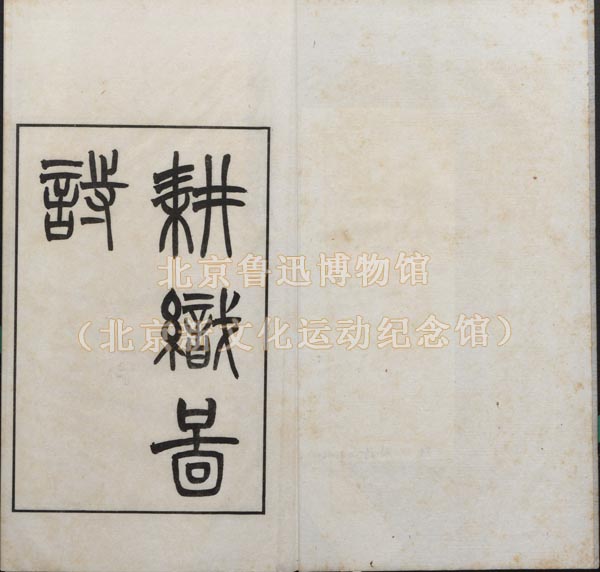 耕織啚
詩
北京鲁迅博物馆
（北京新文化运动纪念馆）